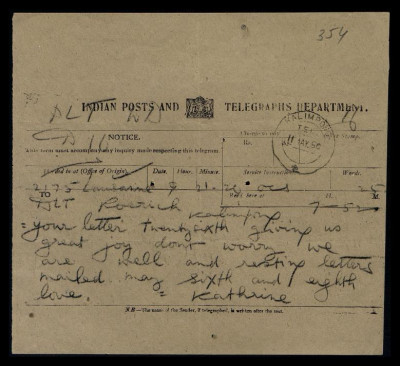 354
DLT
INDIAN POSTS AND TELEGRAPHS DEPARTMENT.
NOTICE.
This form must accompany any inquiry made respecting this telegram.
Handed in at (Office of Origin). Date. Hour. Service Instructions. Words.
Lausanne 9 25
TO
DLT Roerich
Kalimpong
= your letter twentysixth giving us
great joy dont worry we
are well and resting letters
mailed may sixth and eighth
love. = Kathrine
N.B.—The name of the Sender, if telegraphed, is written after the text.